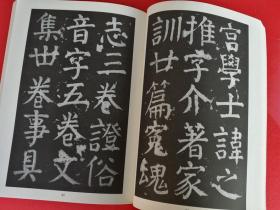 宮學士諱之
推字介著家
訓廿篇冤魂
志三卷證俗
音字五卷文
集卅卷事具